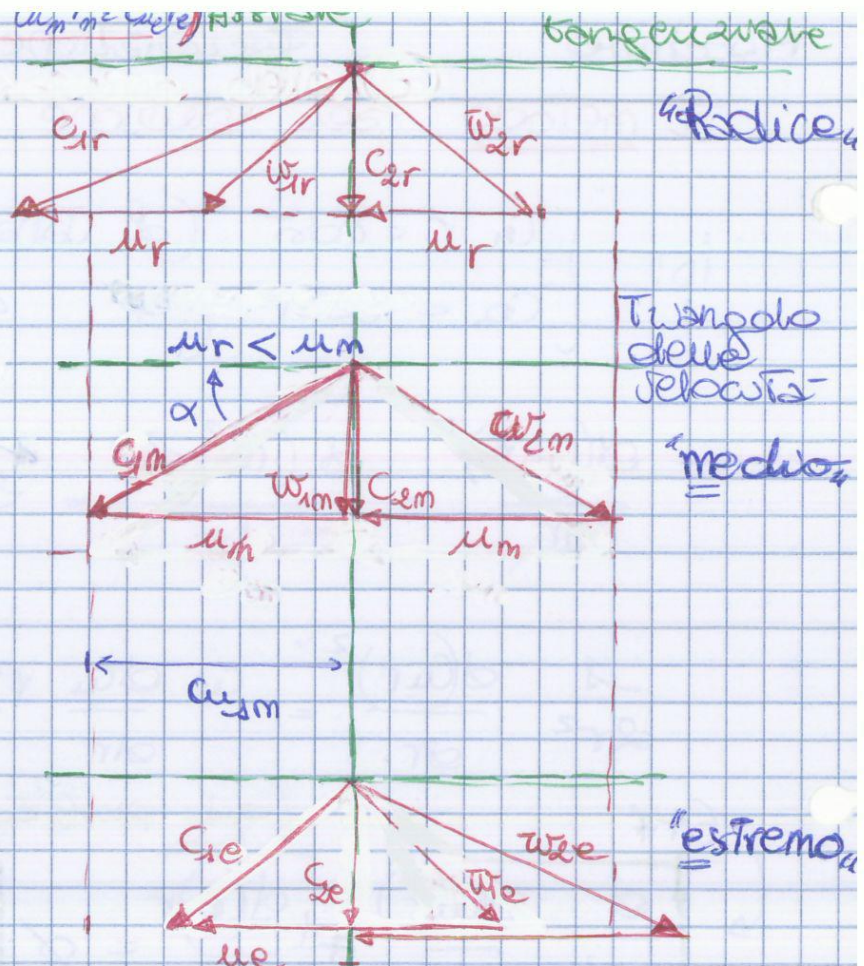 tangenziale
"Radice"
c1r
w1r
C2r
w2r
ur
ur
ur < um
Triangolo
delle
velocità
α
"medio"
c1m
w1m
C2m
w2m
um
um
cu1m
"estremo"
C1e
C2e
we
w2e
ue